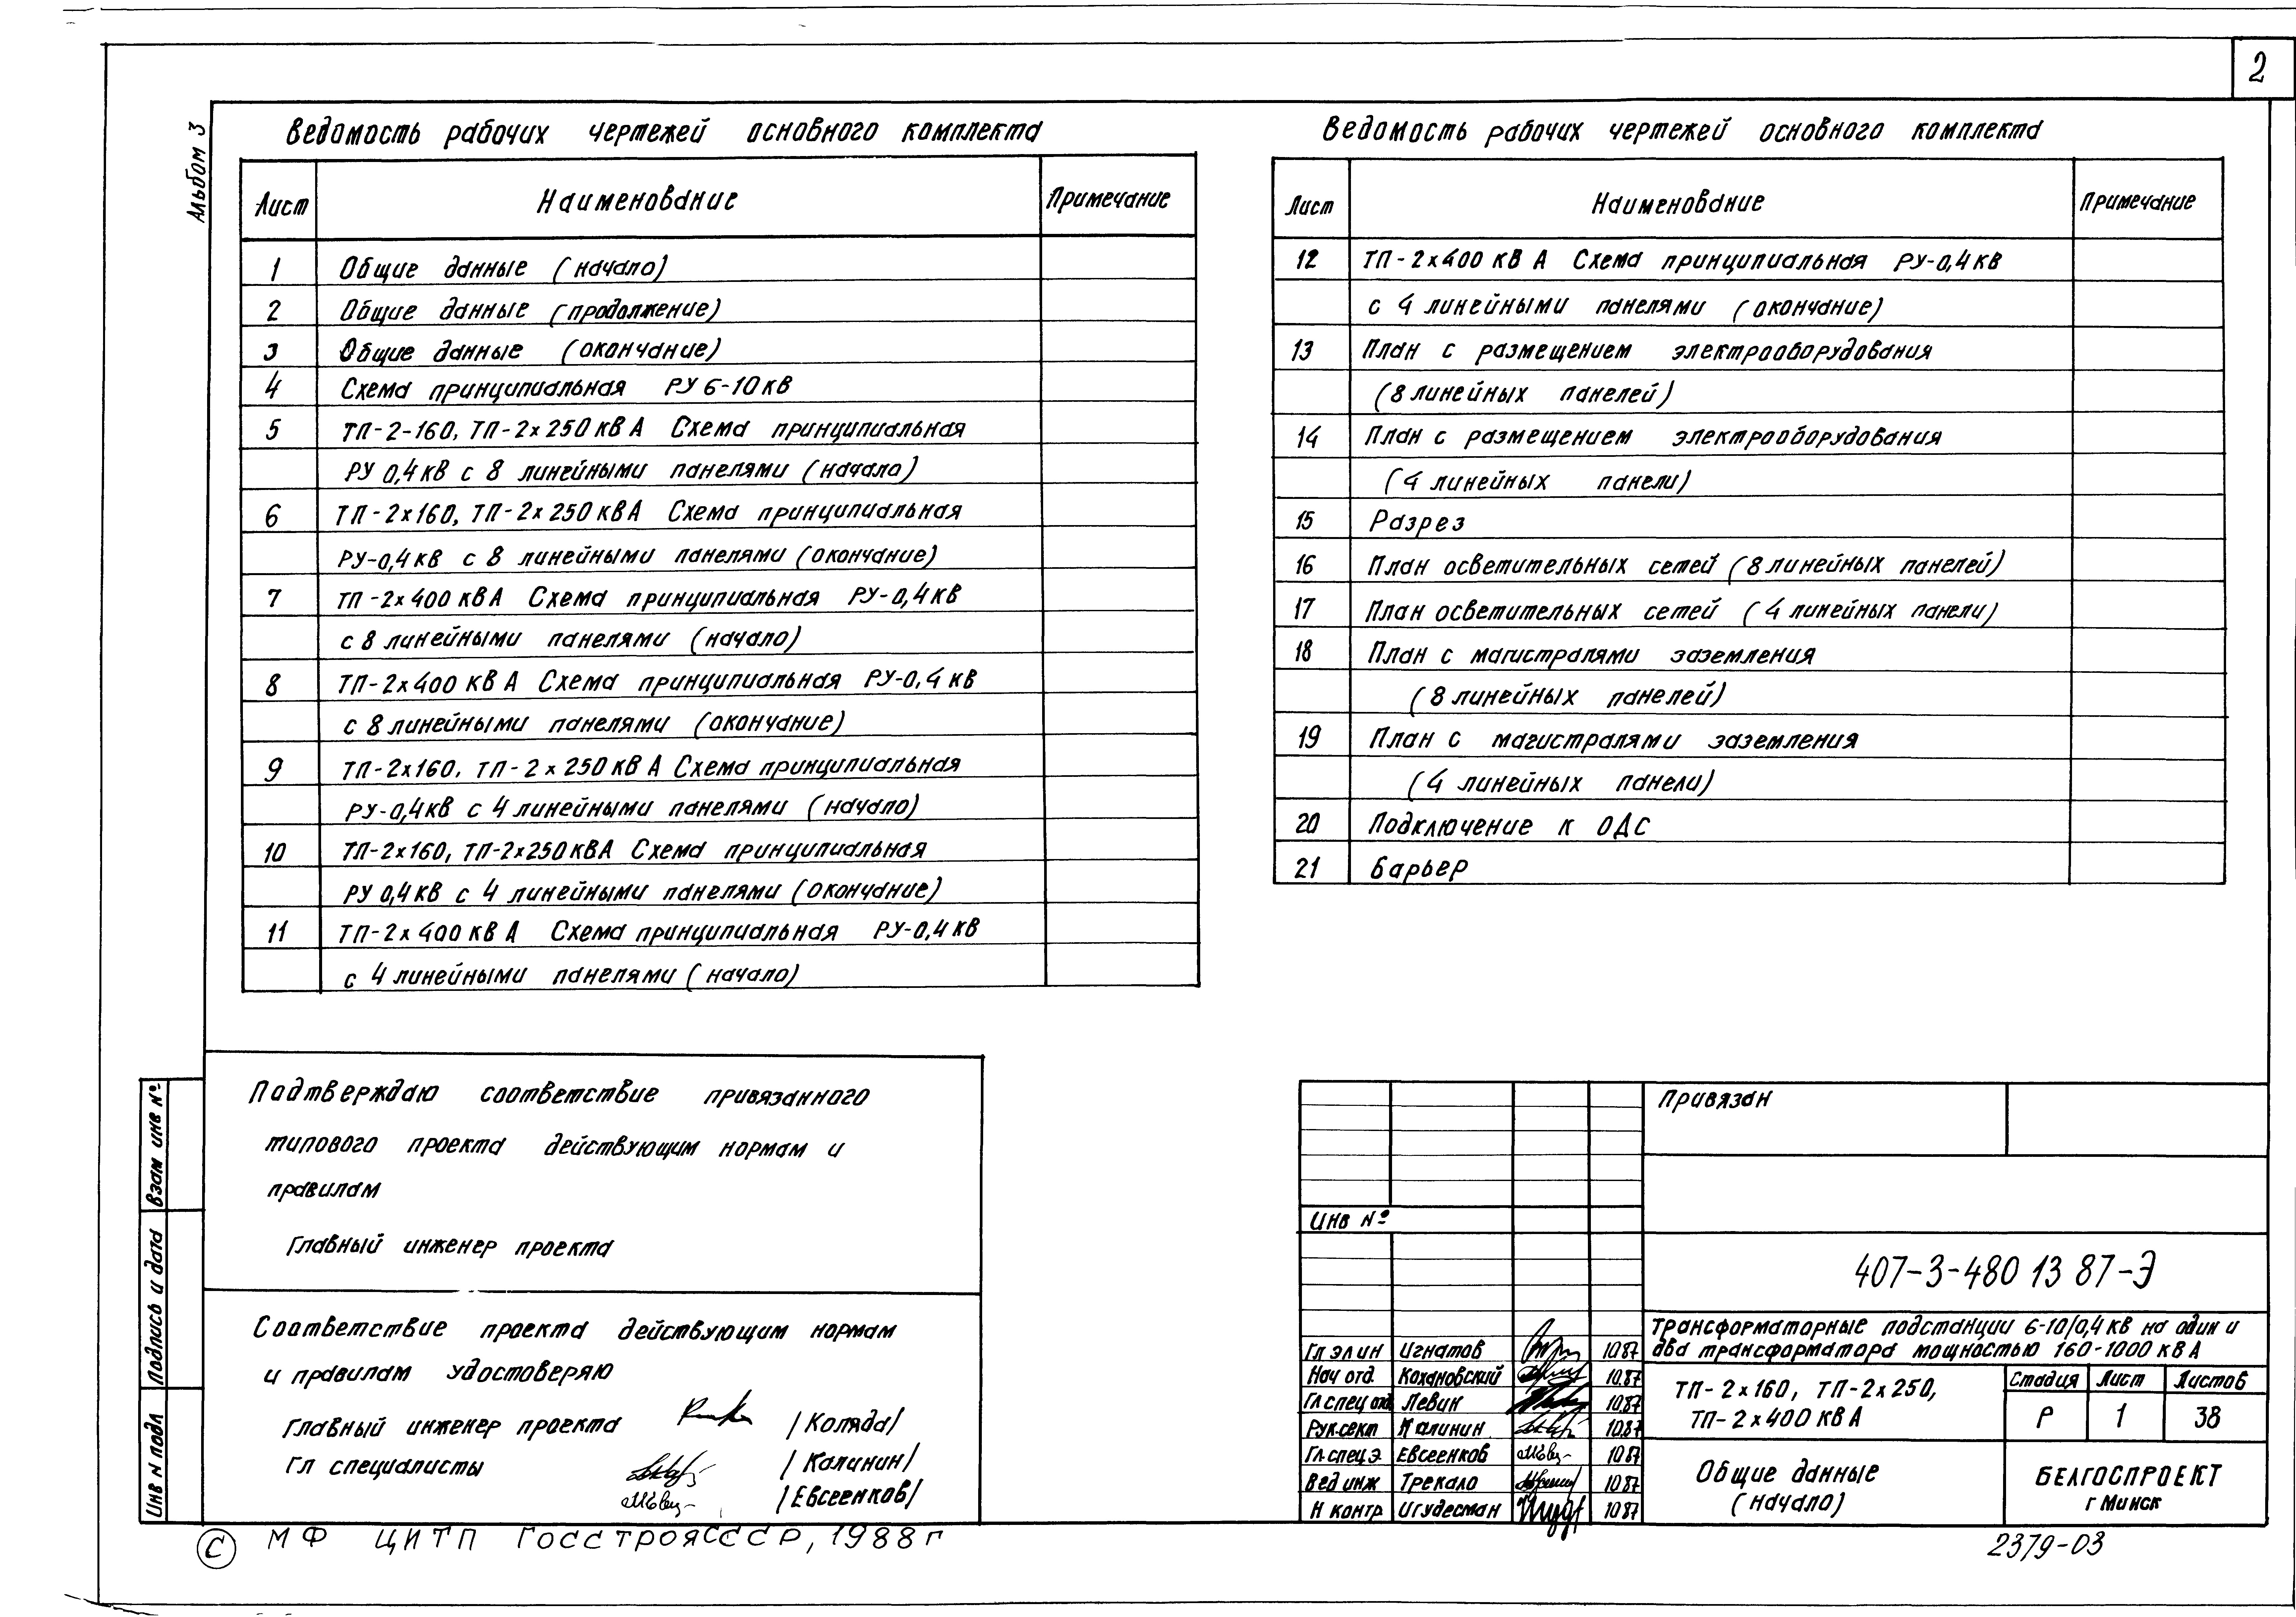 2
Альбом 3
Ведомость рабочих чертежей основного комплекта
Лист Наименование Примечание
1 Общие данные (начало)
2 Общие данные (продолжение)
3 Общие данные (окончание)
4 Схема принципиальная РУ 6-10кВ
5 ТП-2-160, ТП-2х250кВА Схема принципиальная
РУ 0,4кВ с 8 линейными панелями (начало)
6 ТП-2х160, ТП-2х250кВА Схема принципиальная
РУ-0,4кВ с 8 линейными панелями (окончание)
7 ТП-2х400кВА Схема принципиальная РУ-0,4кВ
с 8 линейными панелями (начало)
8 ТП-2х400 кВА Схема принципиальная РУ-0,4 кВ
с 8 линейными панелями (окончание)
9 ТП-2х160, ТП-2х250кВА Схема принципиальная
РУ-0,4кВ с 4 линейными панелями (начало)
10 ТП-2х160, ТП-2х250кВА Схема принципиальная
РУ 0,4кВ с 4 линейными панелями (окончание)
11 ТП-2х400кВА Схема принципиальная РУ-0,4кВ
с 4 линейными панелями (начало)
Ведомость рабочих чертежей основного комплекта
Лист Наименование Примечание
12 ТП-2х400кВА Схема принципиальная РУ-0,4кВ
с 4 линейными панелями (окончание)
13 План с размещением электрооборудования
(8 линейных панелей)
14 План с размещением электрооборудования
(4 линейных панели)
15 Разрез
16 План осветительных сетей (8 линейных панелей)
17 План осветительных сетей (4 линейных панели)
18 План с магистралями заземления
(8 линейных панелей)
19 План с магистралями заземления
(4 линейных панели)
20 Подключение к ОДС
21 Барьер
Подтверждаю соответствие привязанного
типового проекта действующим нормам и
правилам
Главный инженер проекта
Соответствие проекта действующим нормам
и правилам удостоверяю
Главный инженер проекта /Коляда/
Гл специалисты /Калинин/
/Евсеенков/
Взам инв №
Подпись и дата
Инв N подл
Привязан
Инв №
407-3-480 13 87-Э
Трансформаторные подстанции 6-10/0,4кВ на один и
два трансформатора мощностью 160-1000 кВА
Гл эл ин Игнатов 1087
Нач отд. Кохановский 10.87
Гл спец отд Левин 10.87
Рук.сект Калинин 10.87
Гл.спец.э Евсеенков 1087
Вед инж Трекало 1087
Н контр Игудесман 1087
ТП-2х160, ТП-2х250,
ТП-2х400 кВА
Стадия Лист Листов
Р 1 38
Общие данные
(начало)
БЕЛГОСПРОЕКТ
г Минск
© МФ ЦИТП ГОССТРОЯ СССР, 1988г
2379-03